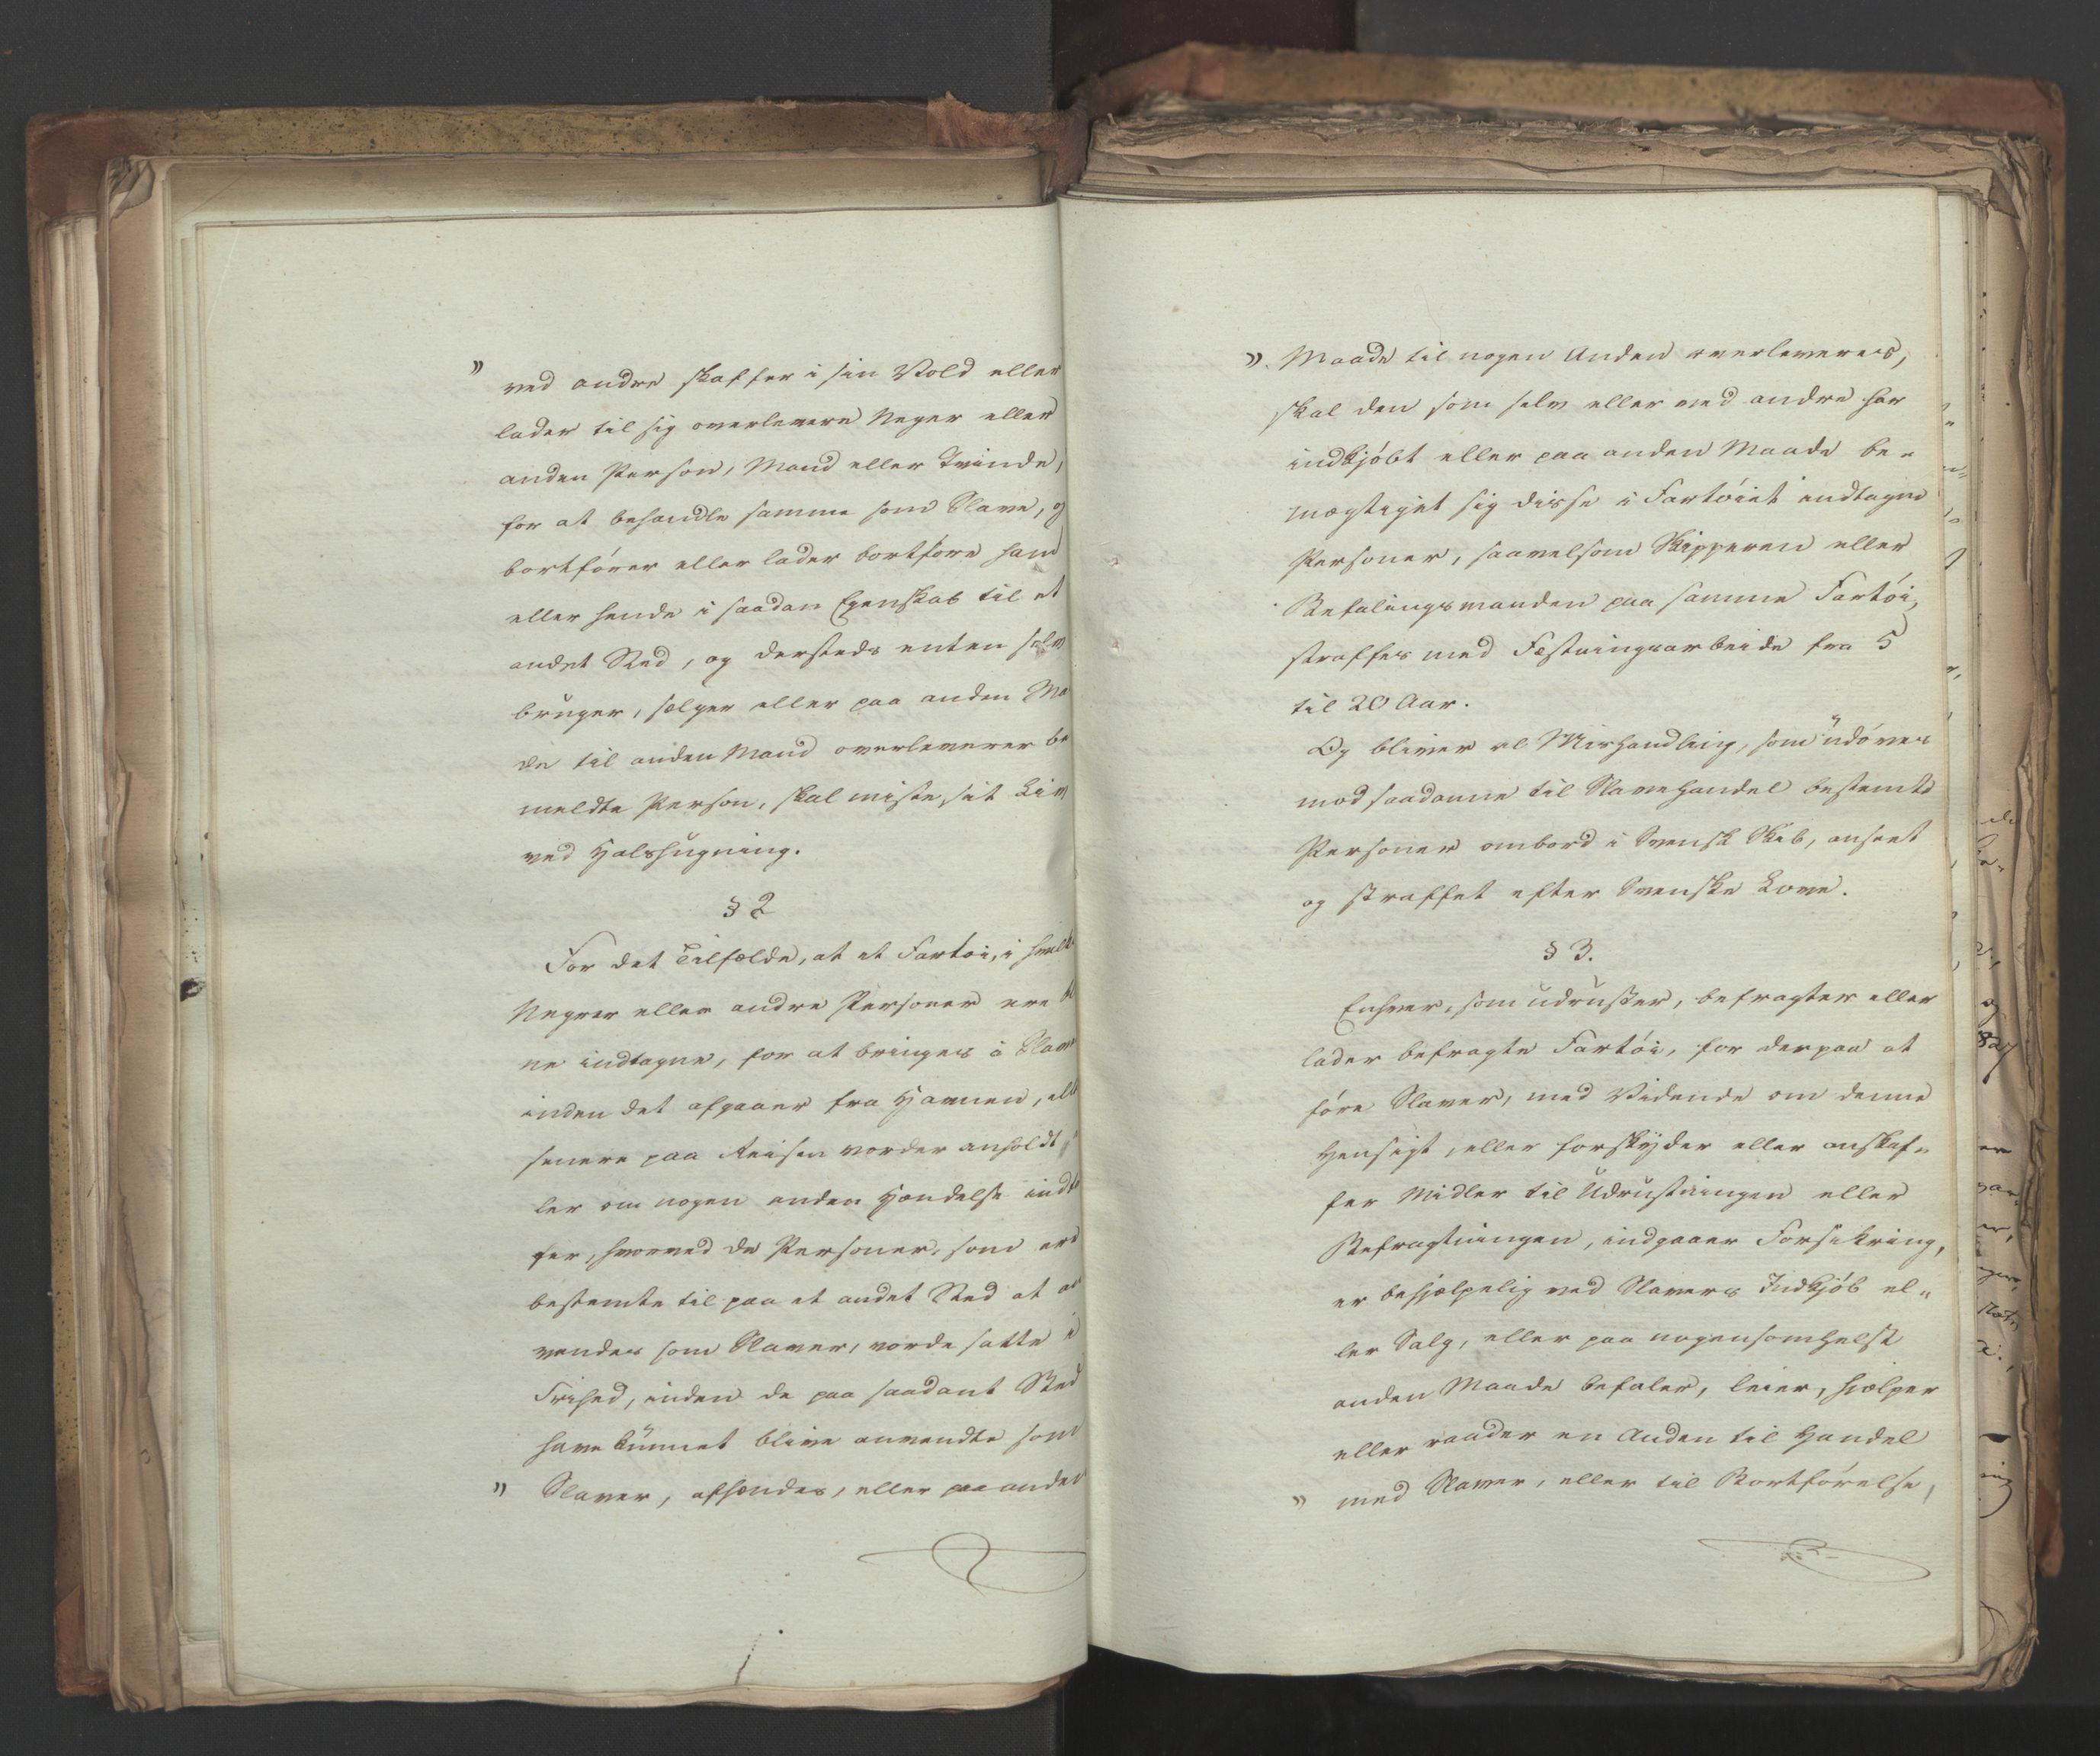 " ved andre skaffer i sin Vold eller
lader til sig overlevere Neger eller
anden Person, Mand eller Qvinde,
for at behandle samme som Slave, og
bortfører eller lader bortføre ham
eller hende i saadan Egenskab til et
andet Sted, og dersteds enten selv
brŭger, sælger eller paa anden Ma
de til anden Mand overleverer be
meldte Person, skal miste sit Liv
ved Halshŭgning.
§ 2
For det Tilfælde, at et Fartøi, i hvilk
Negrer eller andre Personer ere
ne indtagne, for at bringes i Slave
inden det afgaaer fra Havnen, ell
senere paa Reisen vorder anholdt
ler om nogen anden Hændelse indt
fer, hvorved de Personer, som ere
bestemte til paa et andet Sted at an
vendes som Slaver, vorde satte i
Frihed, inden de paa saadant Sted
have kŭnnet blive anvendte som
" Slaver, afhændes, eller paa anden
". Maade til nogen Anden overleveres,
skal den som selv eller ved andre har
indkjøbt eller paa anden Maade be„
mægtiget sig disse i Fartøiet indtagne
Personer, saavelsom Skipperen eller
Befalingsmanden paa samme Fartøi,
straffes med Fæstningsarbeide fra 5
til 20 Aar.
Og bliver al Mishandling, som ŭdøves
mod saadanne til Slavehandel bestemte
Personer ombord i Svensk Skib, anseet
og straffet efter Svenske Love.
§ 3.
Enhver, som ŭdrŭster, befragter eller
lader befragte Fartøi, for derpaa at
føre Slaver, med Vidende om denne
Hensigt, eller forskyder eller anskaf„
fer Midler til Ŭdrŭstningen eller
Befragtningen, indgaaer Forsikring,
er behjælpelig ved Slavers Indkjøb el„
ler Salg, eller paa nogensomhelst
anden Maade befaler, leier, hjælper
eller raader en Anden til Handel
" med Slaver, eller til Bortførelse,